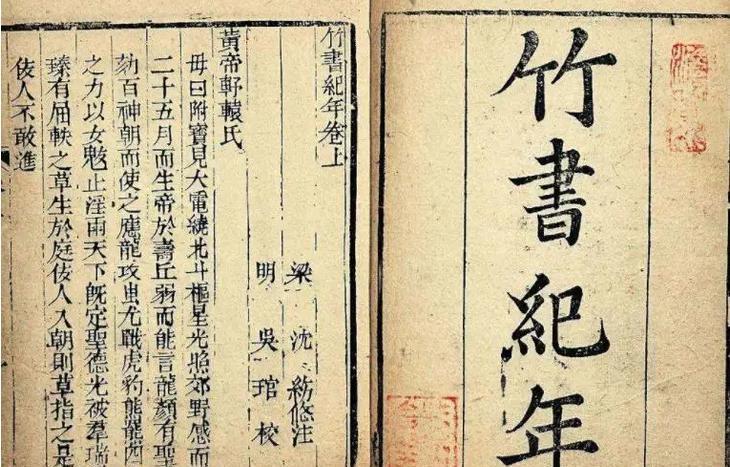 竹書紀年
竹書紀年卷上
梁沈約修注
明吳琯校
黃帝軒轅氏
母曰附寶見大電繞北斗樞星光照郊野感而
二十五月而生帝於壽丘弱而能言龍顏有聖
劾百神朝而使之應龍攻蚩尤戰虎豹熊羆四
之力以女魃止淫雨天下既定聖德光被羣瑞
臻有屈軼之草生於庭佞人入朝則草指之是
佞人不敢進